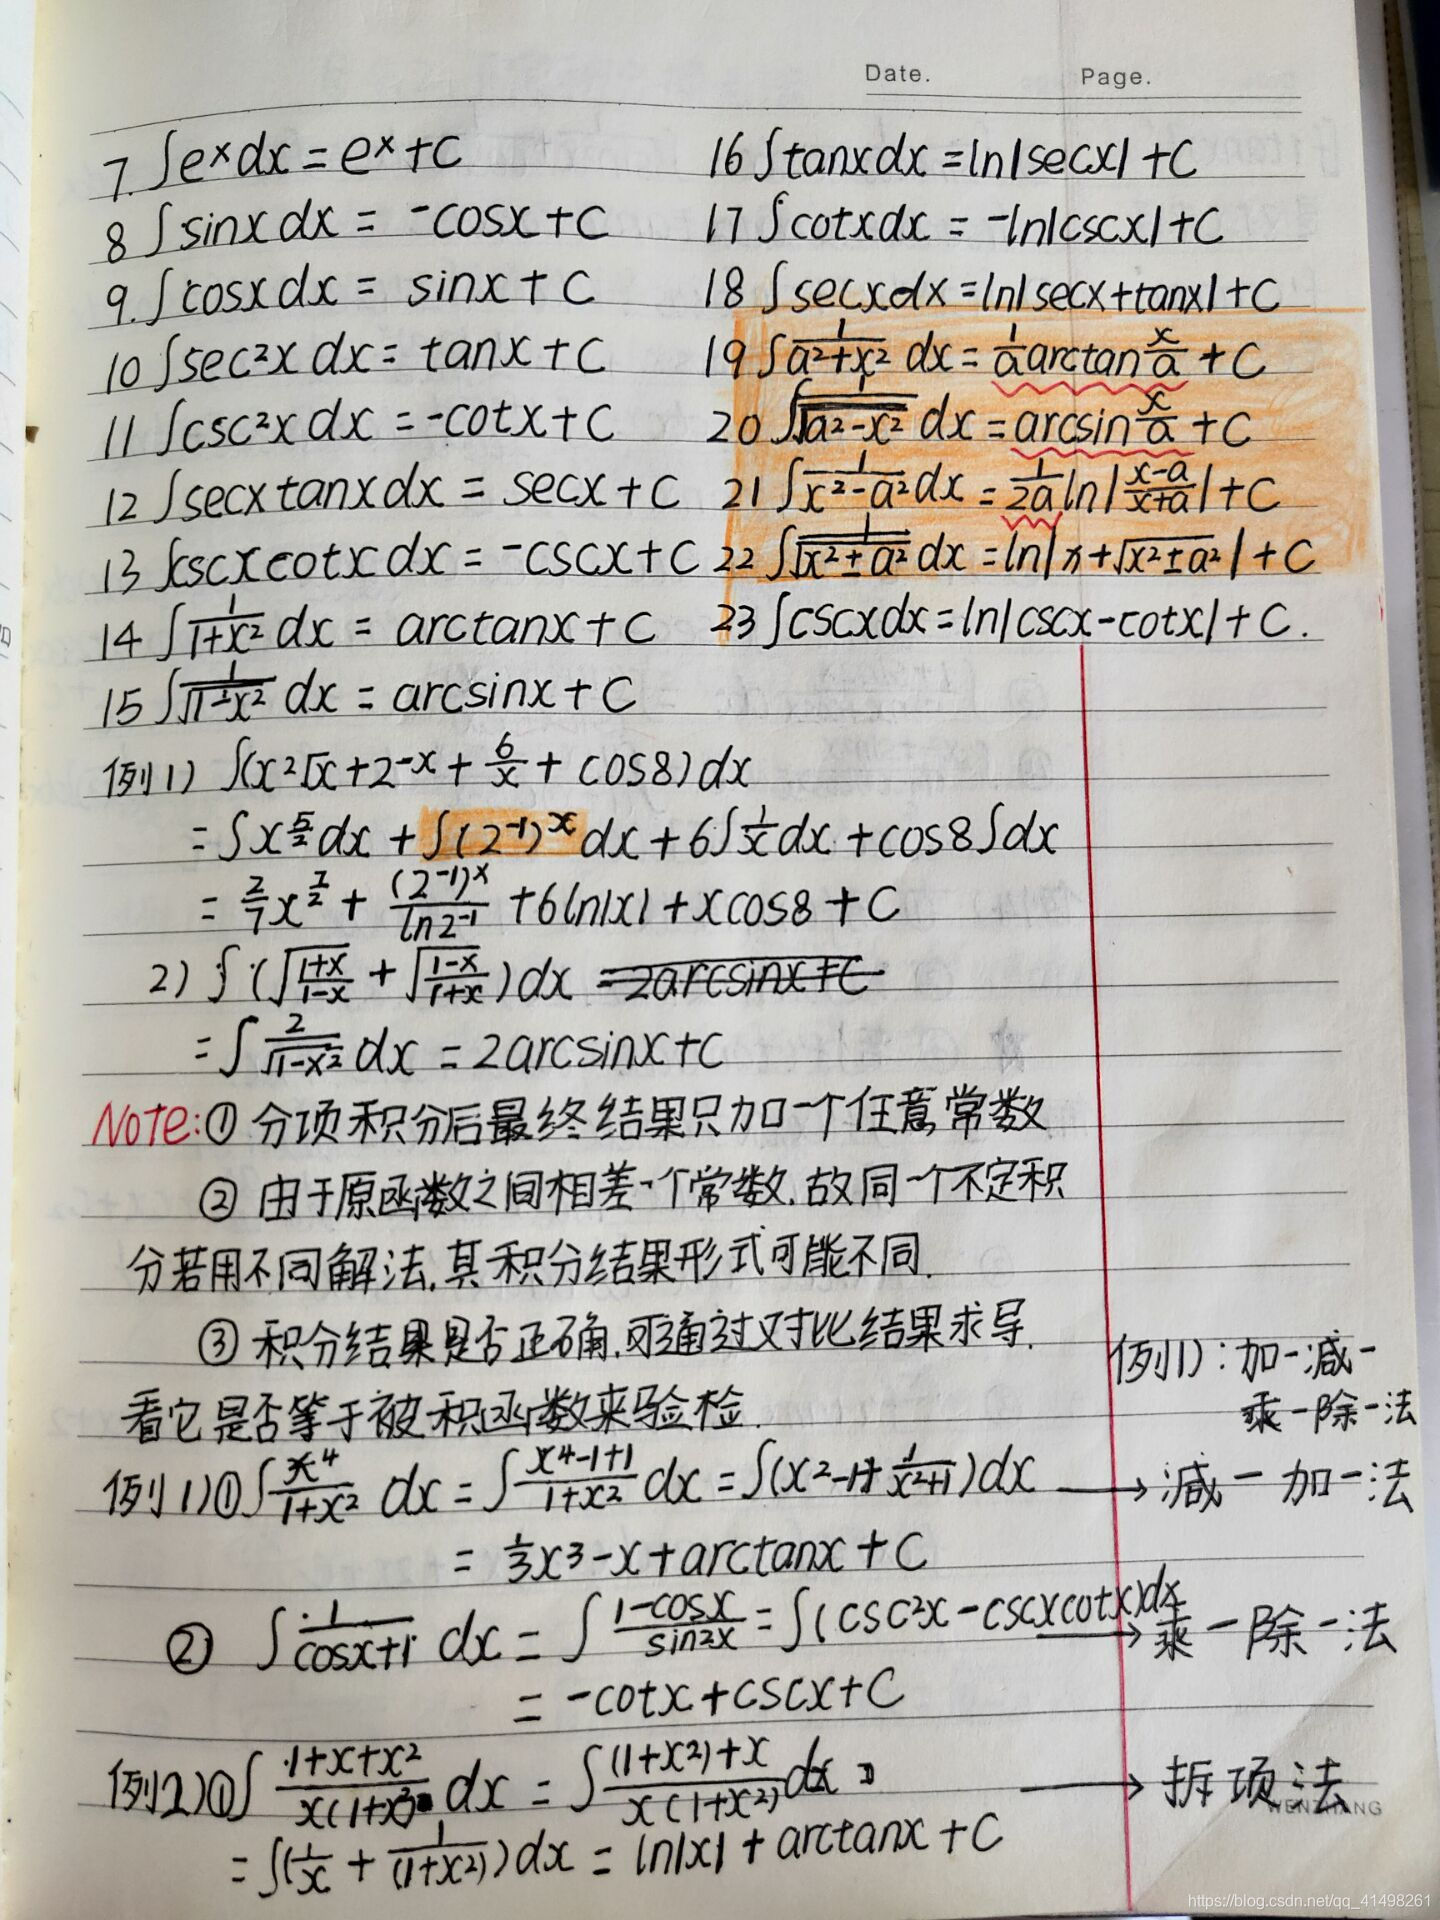 Date. Page.
7. ∫eˣdx = eˣ+C
8 ∫sinx dx = -cosx+C
9. ∫cosx dx = sinx+C
10 ∫sec²x dx = tanx+C
11 ∫csc²x dx = -cotx+C
12 ∫secxtanxdx = secx+C
13 ∫cscxcotxdx = -cscx+C
14 ∫1/(1+x²) dx = arctanx+C
15 ∫1/√(1-x²) dx = arcsinx+C
16 ∫tanxdx = ln|secx|+C
17 ∫cotxdx = -ln|cscx|+C
18 ∫secxdx = ln|secx+tanx|+C
19 ∫1/(a²+x²) dx = 1/a arctan x/a + C
20 ∫1/√(a²-x²) dx = arcsin x/a + C
21 ∫1/(x²-a²) dx = 1/(2a) ln|(x-a)/(x+a)|+C
22 ∫1/√(x²±a²) dx = ln|x+√(x²±a²)|+C
23 ∫cscxdx = ln|cscx-cotx|+C.
例1) ∫(x²√x+2⁻ˣ+6/x+cos8)dx
= ∫x^(5/2)dx + ∫(2⁻¹)ˣdx + 6∫1/x dx + cos8∫dx
= 2/7 x^(7/2) + (2⁻¹)ˣ/ln2⁻¹ + 6ln|x| + xcos8 + C
2) ∫(√((1+x)/(1-x)) + √((1-x)/(1+x)))dx = 2arcsinx+C
= ∫2/√(1-x²) dx = 2arcsinx+C
Note: ① 分项积分后最终结果只加一个任意常数
② 由于原函数之间相差一个常数,故同一个不定积
分若用不同解法,其积分结果形式可能不同.
③ 积分结果是否正确,可通过对比结果求导,
看它是否等于被积函数来验检.
例1): 加一减一
乘一除一法
例1)① ∫x⁴/(1+x²) dx = ∫(x⁴-1+1)/(1+x²) dx = ∫(x²-1+1/(x²+1))dx → 减一加一法
= 1/3x³-x+arctanx+C
② ∫1/(cosx+1) dx = ∫(1-cosx)/sin²x = ∫(csc²x-cscxcotx)dx → 乘一除一法
= -cotx+cscx+C
例2)① ∫(1+x+x²)/(x(1+x²)) dx = ∫((1+x²)+x)/(x(1+x²)) dx → 拆项法
= ∫(1/x + 1/(1+x²))dx = ln|x|+arctanx+C
WENZHANG
https://blog.csdn.net/qq_41498261